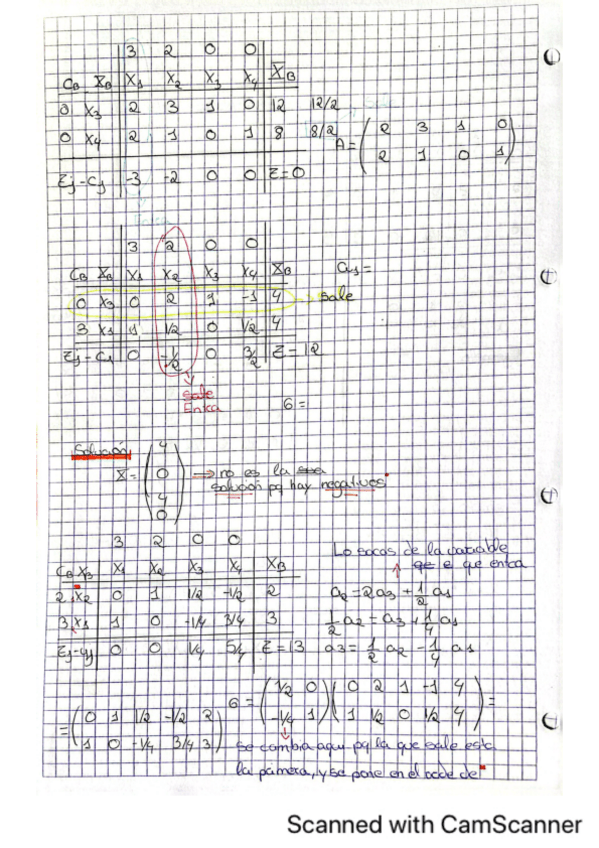 3 2 0 0
CB X̄B X1 X2 X3 X4 X̄B
0 X3 2 3 1 0 12 12/2
0 X4 2 1 0 1 8 8/2
A = (2 3 1 0
2 1 0 1)
Zj - Cj -3 -2 0 0 Z=0
3 2 0 0
CB X̄B X1 X2 X3 X4 X̄B
a1 =
0 X3 0 2 1 -1 4 → sale
3 X1 1 1/2 0 1/2 4
Zj - Cj 0 -1/2 0 3/2 Z=12
Entra
6 =
Solución
X̄ = (4
0
4
0) → no es la
solución pq hay negativos
3 2 0 0
CB XB X1 X2 X3 X4 XB
2 X2 0 1 1/2 -1/2 2
3 X1 1 0 -1/4 3/4 3
Zj-Cj 0 0 1/4 5/4 Z=13
Lo sacas de la variable
que entra
a2 = 2a3 + 1/2 a1
1/2 a2 = a3 + 1/4 a1
a3 = 1/2 a2 - 1/4 a1
6 = (1/2 0
-1/4 1) (0 2 1 -1 4
1 1/2 0 1/2 4) =
= (0 1 1/2 -1/2 2
1 0 -1/4 3/4 3)
se cambia aqui pq la que sale esta
la primera, y se pone en el orden de
Scanned with CamScanner